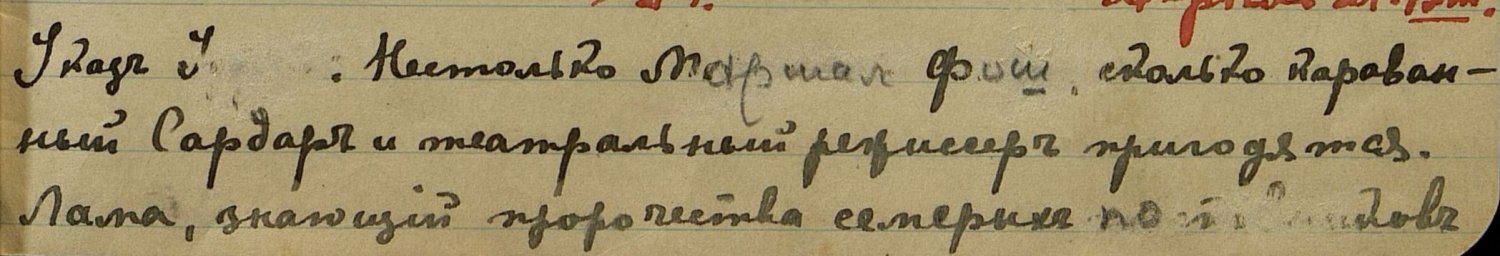 Указъ : Нестолько Маршал Фош, сколько караван-
ный Сардаръ и театральный режиссеръ пригодятся.
Лама, знающій пророчества семерыхъ